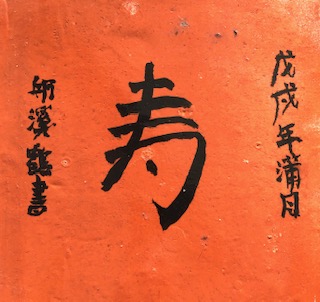 戊戌年蒲月
寿
溪書